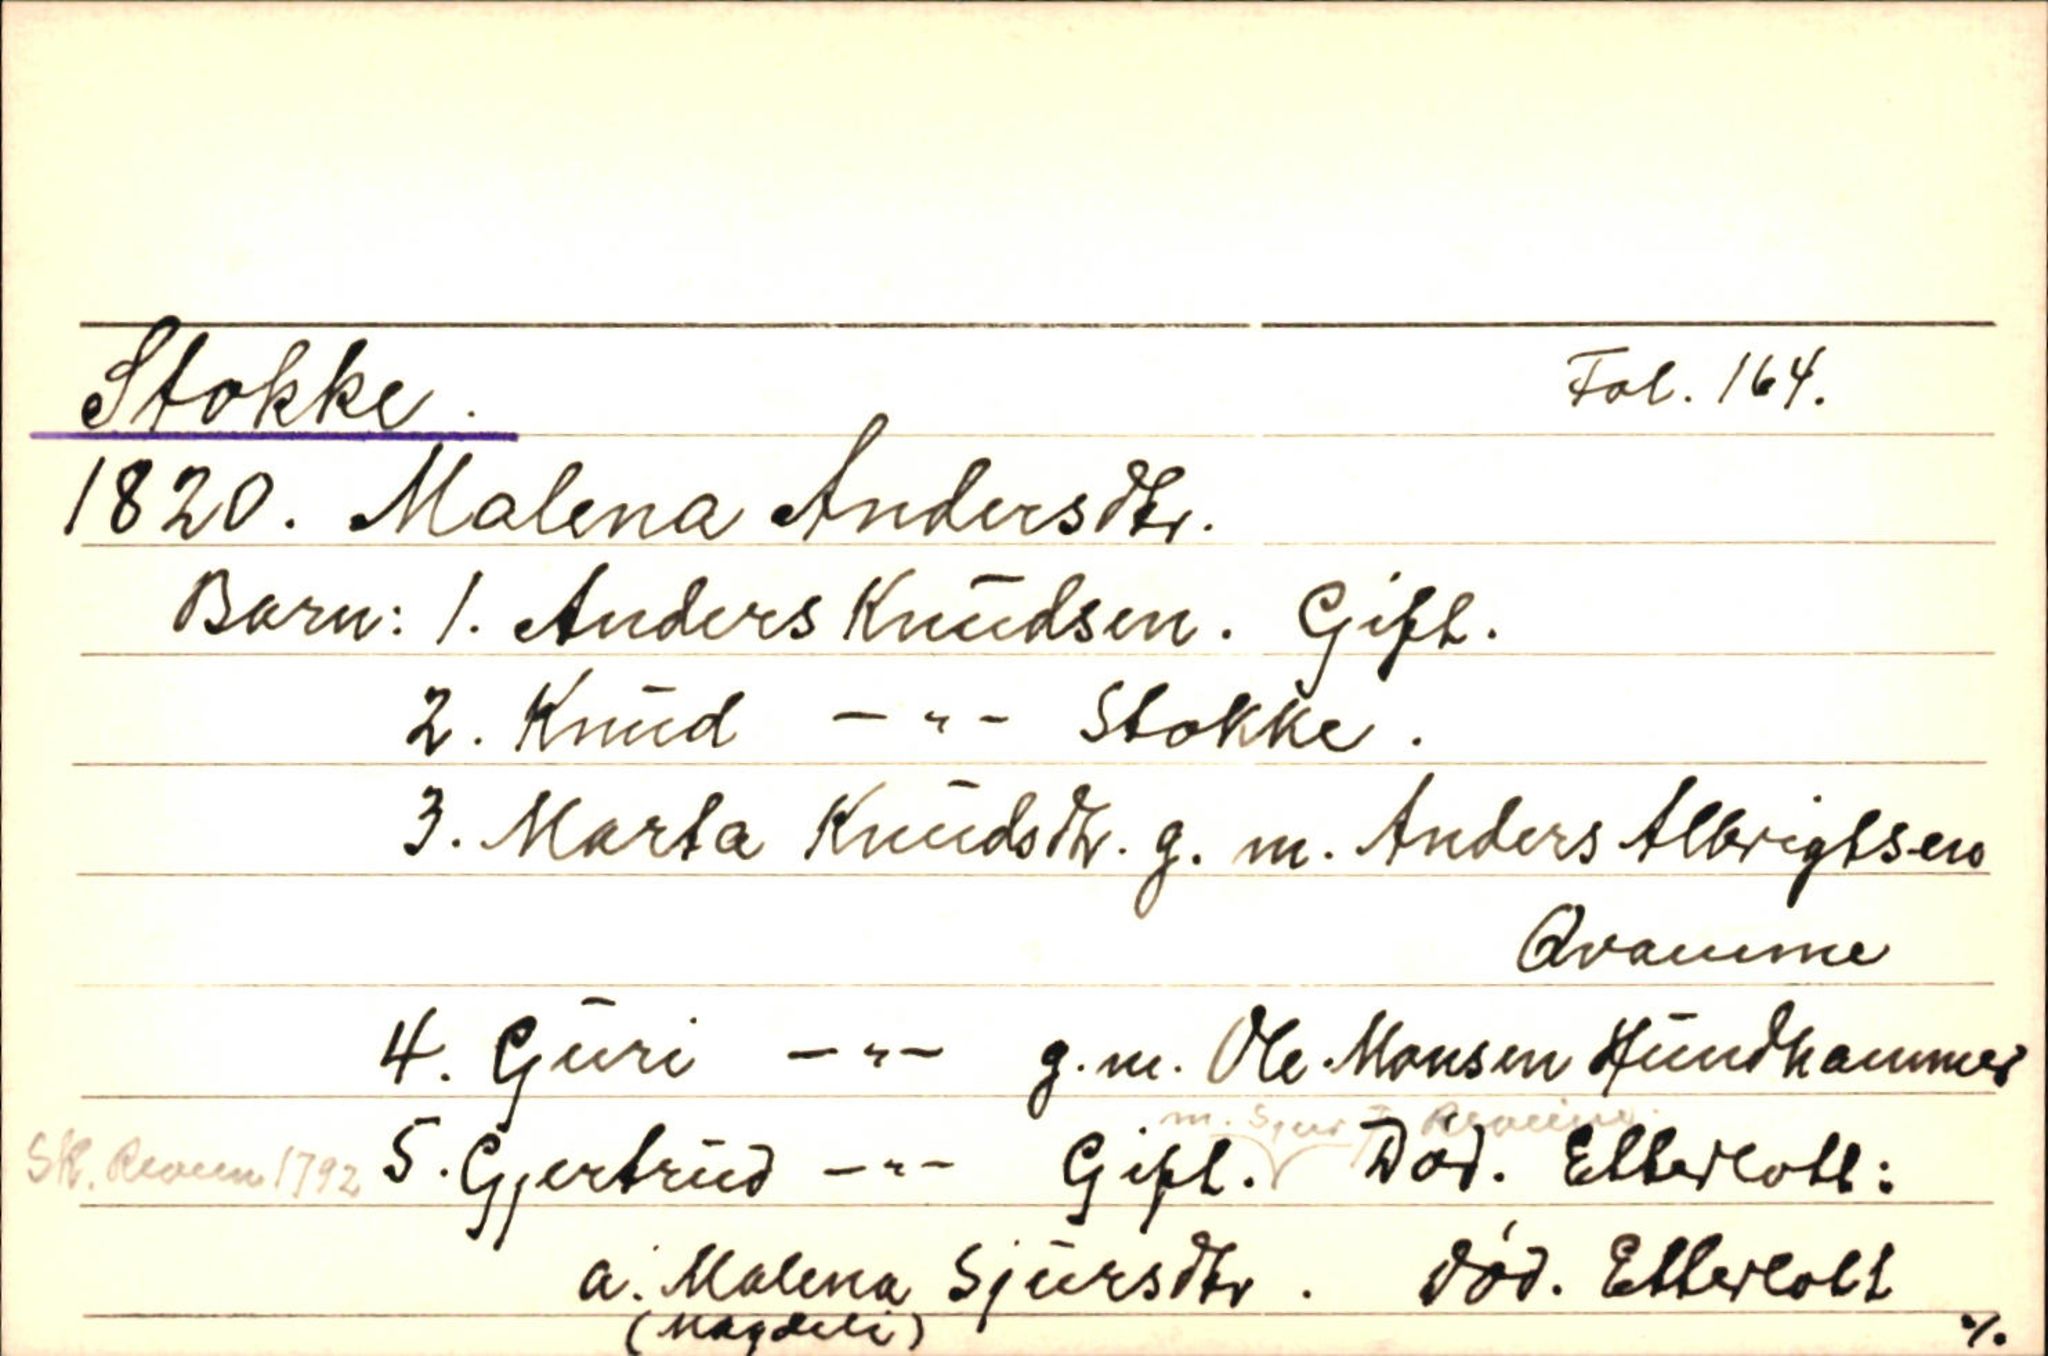 Stokke. Fol. 164.
1820. Malena Andersdtr.
Barn: 1. Anders Knudsen. Gift.
2. Knud —"— Stokke.
3. Marta Knudsdtr. g. m. Anders Albrigtsen
Qvamme
4. Guri —"— g.m. Ole Monsen Hundhammer
m. Sjur
SK. 1792 5. Gjertrud —"— Gift. Död. Etterlott:
a. Malena Sjursdtr. död. Etterlott
(Magdeli) ./.